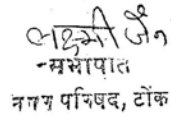 लक्ष्मी जैन
सभापति
नगर परिषद, टोंक